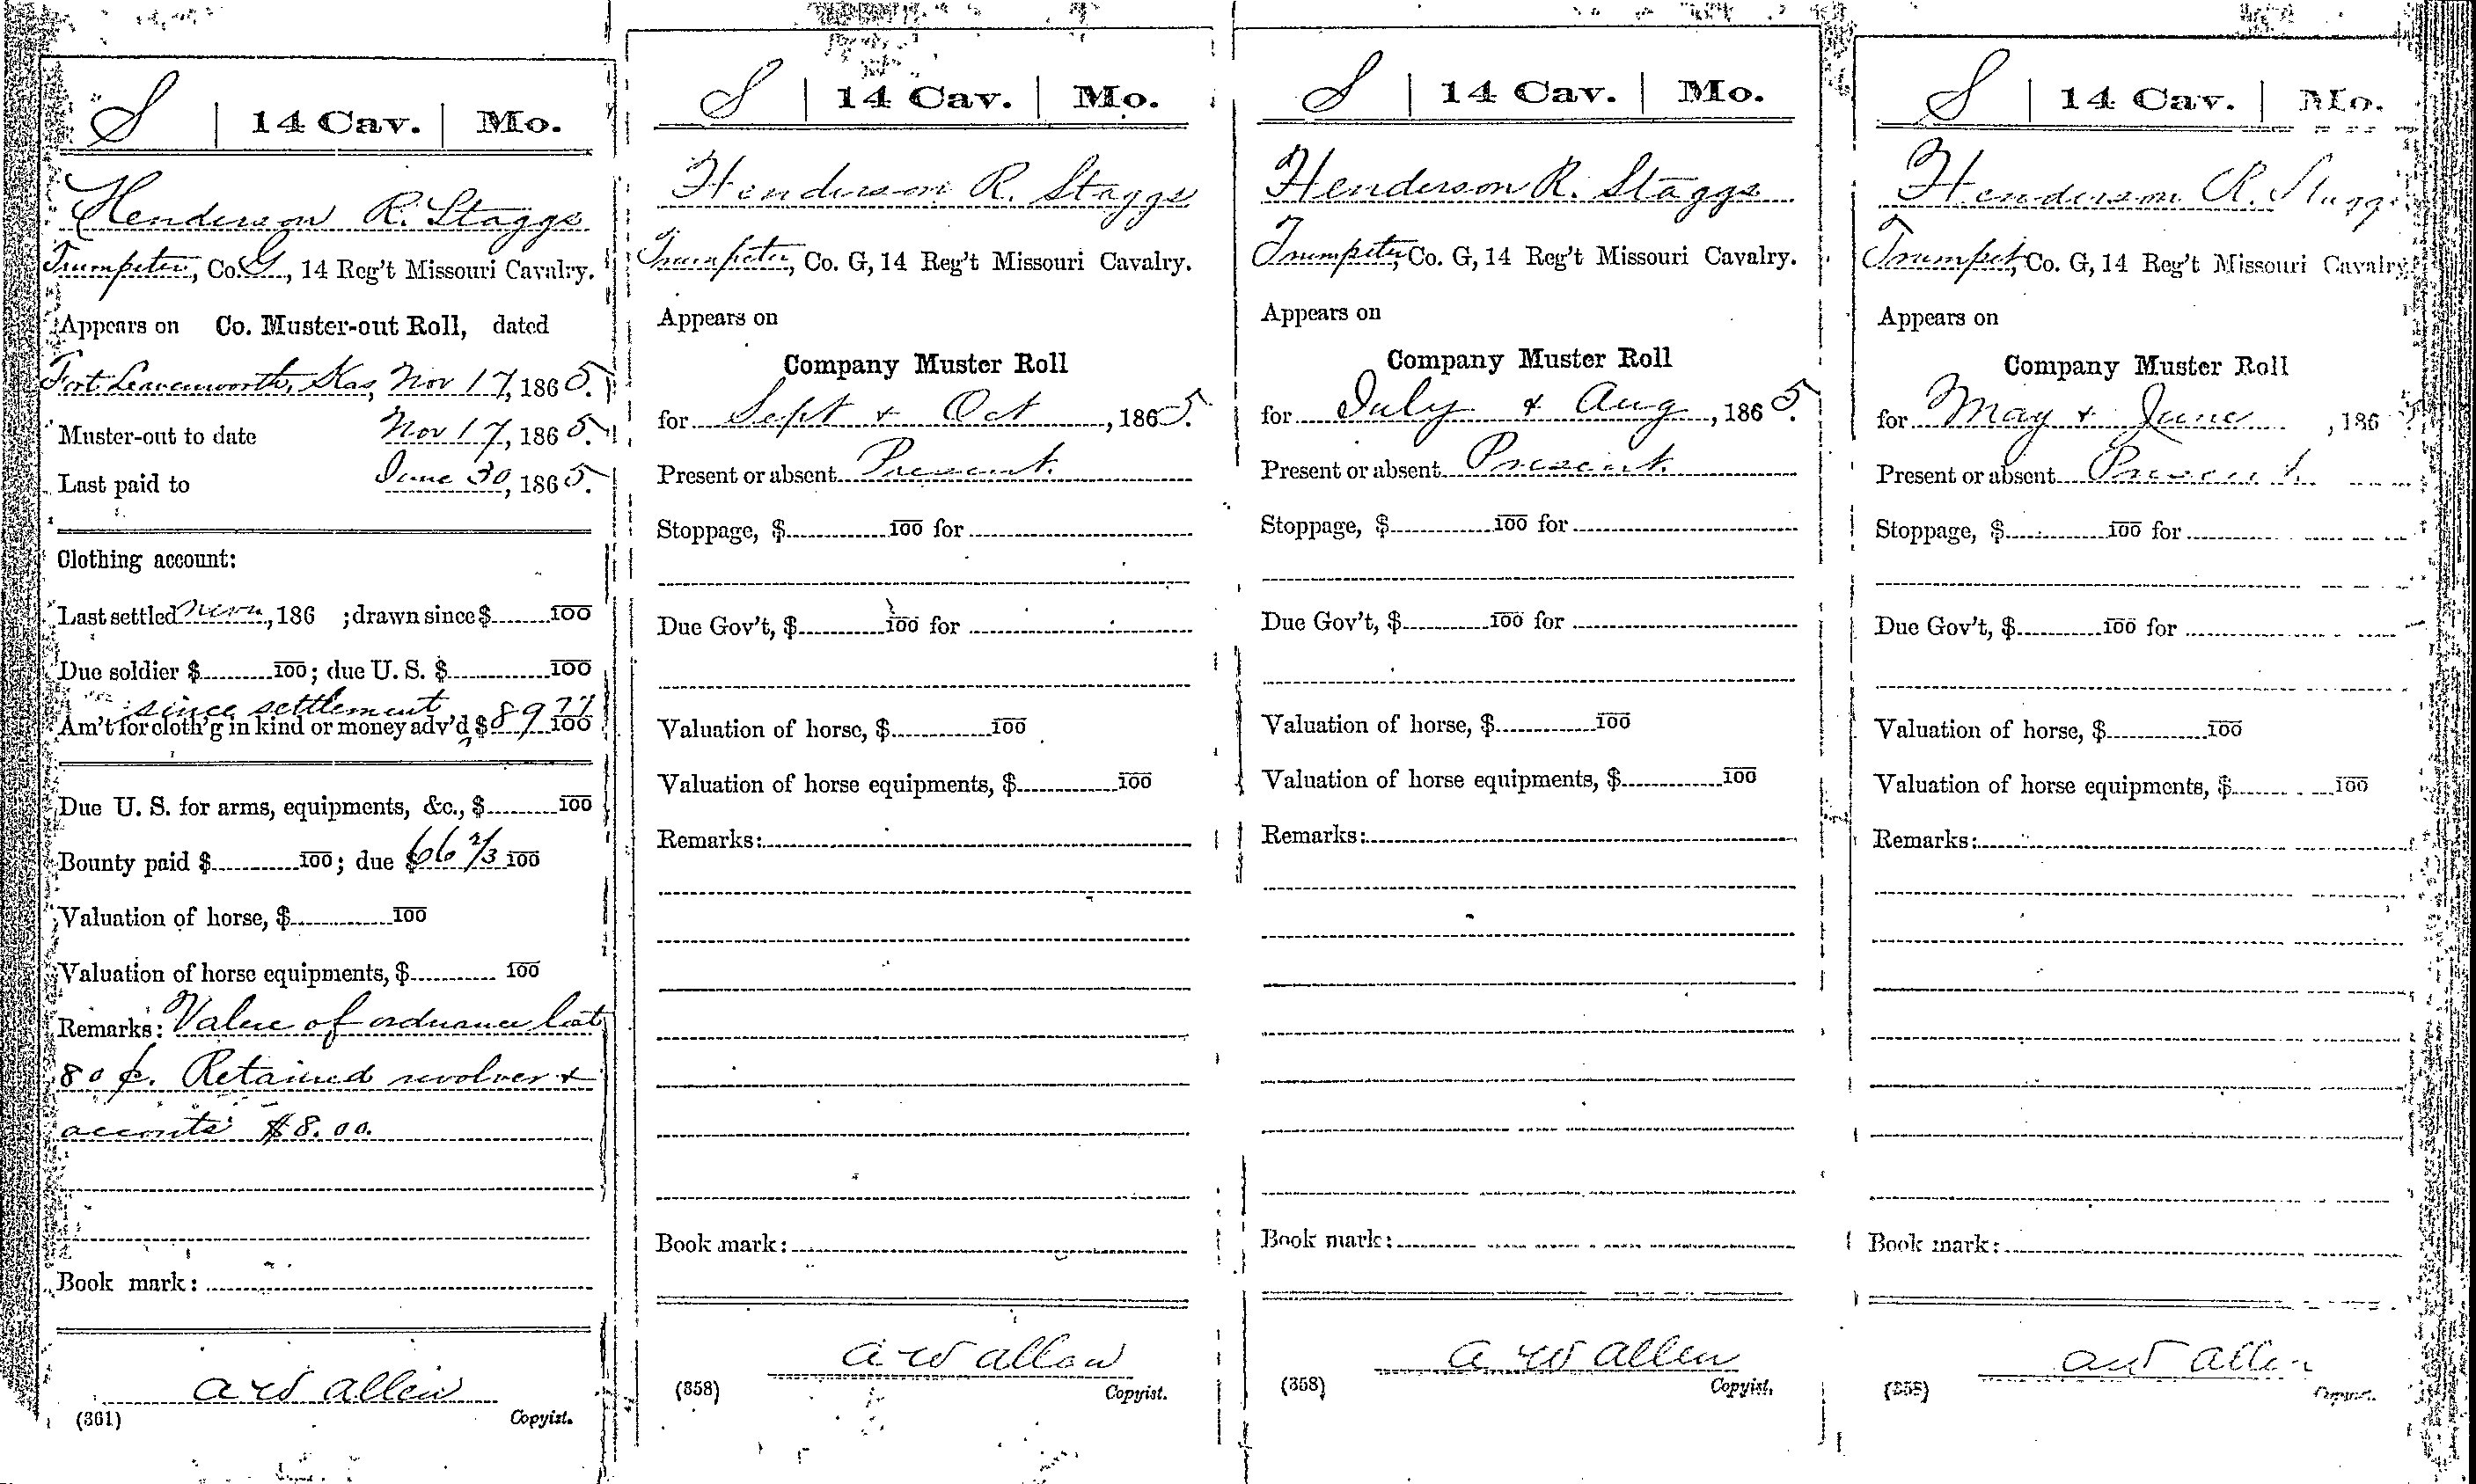 S | 14 Cav. | Mo.
Henderson R. Staggs
Trumpeter, Co. G, 14 Reg't Missouri Cavalry.
Appears on Co. Muster-out Roll, dated
Fort Leavenworth, Kas, Nov 17, 1865.
Muster-out to date Nov 17, 1865.
Last paid to June 30, 1865.
Clothing account:
Last settled never, 186 ; drawn since $ 100
Due soldier $ 100; due U. S. $ 100
since settlement
Am't for cloth'g in kind or money adv'd $ 89 77/100
Due U. S. for arms, equipments, &c., $ 100
Bounty paid $ 100; due $ 66 2/3 100
Valuation of horse, $ 100
Valuation of horse equipments, $ 100
Remarks: Value of ordnance lost
80 ¢. Retained revolver &
accouts $8.00.
Book mark:
A W Allen
(361) Copyist.
S | 14 Cav. | Mo.
Henderson R. Staggs
Trumpeter, Co. G, 14 Reg't Missouri Cavalry.
Appears on
Company Muster Roll
for Sept & Oct, 1865.
Present or absent Present.
Stoppage, $ 100 for
Due Gov't, $ 100 for
Valuation of horse, $ 100
Valuation of horse equipments, $ 100
Remarks:
Book mark:
A W Allen
(358) Copyist.
S | 14 Cav. | Mo.
Henderson R. Staggs
Trumpeter, Co. G, 14 Reg't Missouri Cavalry.
Appears on
Company Muster Roll
for July & Aug, 1865.
Present or absent Present.
Stoppage, $ 100 for
Due Gov't, $ 100 for
Valuation of horse, $ 100
Valuation of horse equipments, $ 100
Remarks:
Book mark:
A W Allen
(358) Copyist.
S | 14 Cav. | Mo.
Henderson R. Staggs
Trumpet, Co. G, 14 Reg't Missouri Cavalry.
Appears on
Company Muster Roll
for May & June, 1865
Present or absent Present.
Stoppage, $ 100 for
Due Gov't, $ 100 for
Valuation of horse, $ 100
Valuation of horse equipments, $ 100
Remarks:
Book mark:
A W Allen
(358) Copyist.